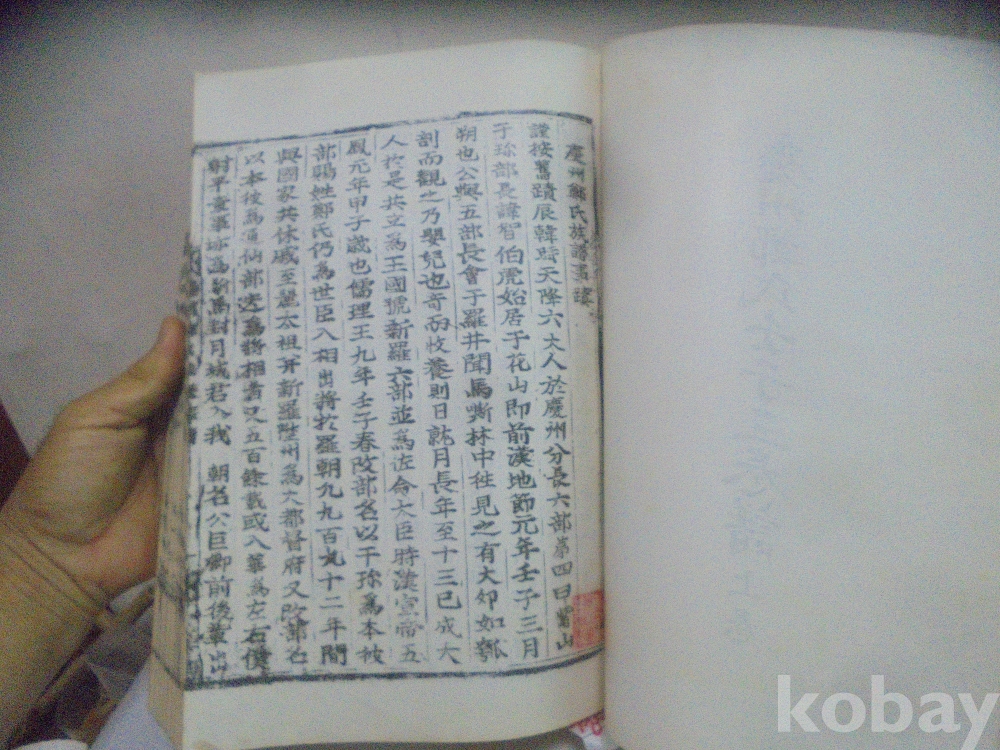 慶州鄭氏族譜事蹟
謹按舊蹟辰韓時天降六大人於慶州分長六部第四曰觜山
于珍部長諱智伯虎始居于花山即前漢地節元年壬子三月
朔也公與五部長會于羅井聞馬嘶林中徃見之有大卵如瓠
剖而觀之乃嬰兒也奇而收養則日就月長年至十三已成大
人於是共立為王國號新羅六部並為佐命大臣時漢宣帝五
鳳元年甲子歲也儒理王九年壬子春改部名以干珍為本彼
部賜姓鄭氏仍為世臣入相出將於羅朝九九百九十二年間
與國家共休戚至麗太祖并新羅陞州為大都督府又改部名
以本彼為通仙部迭為將相者又五百餘載或入華為左右僕
射平章事 月城君入我 朝名公巨卿前後輩出
kobay